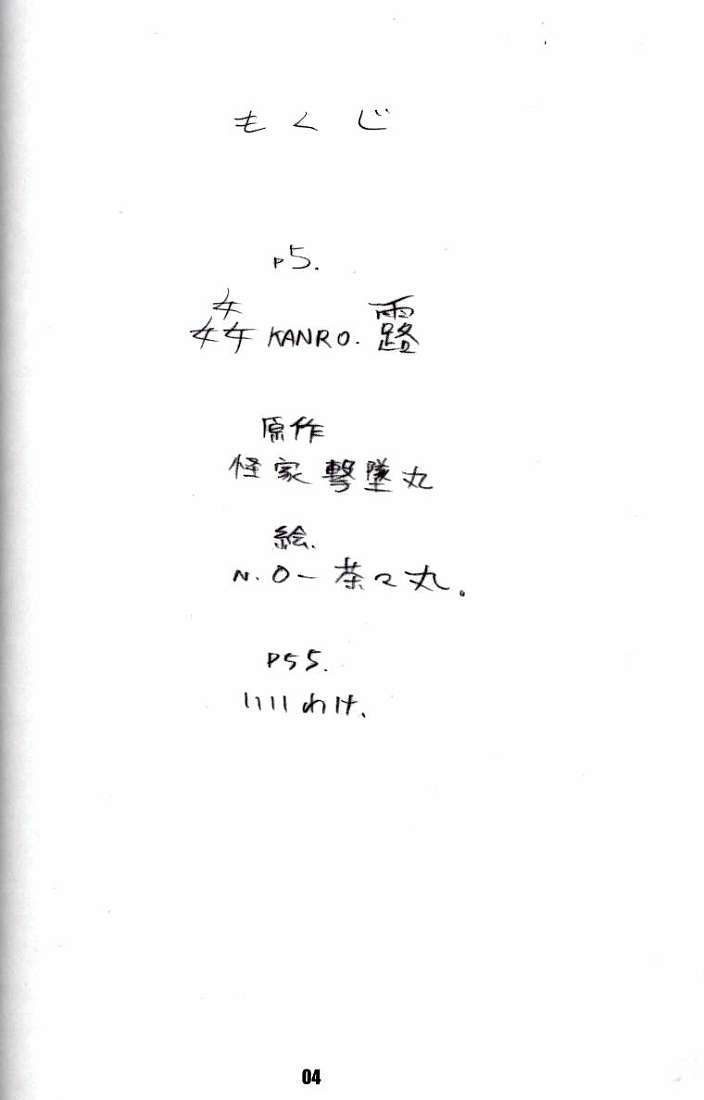 もくじ
P5.
姦 KANRO. 露
原作
怪家 撃墜丸
絵.
N.O－茶々丸。
P55.
いいわけ.
04